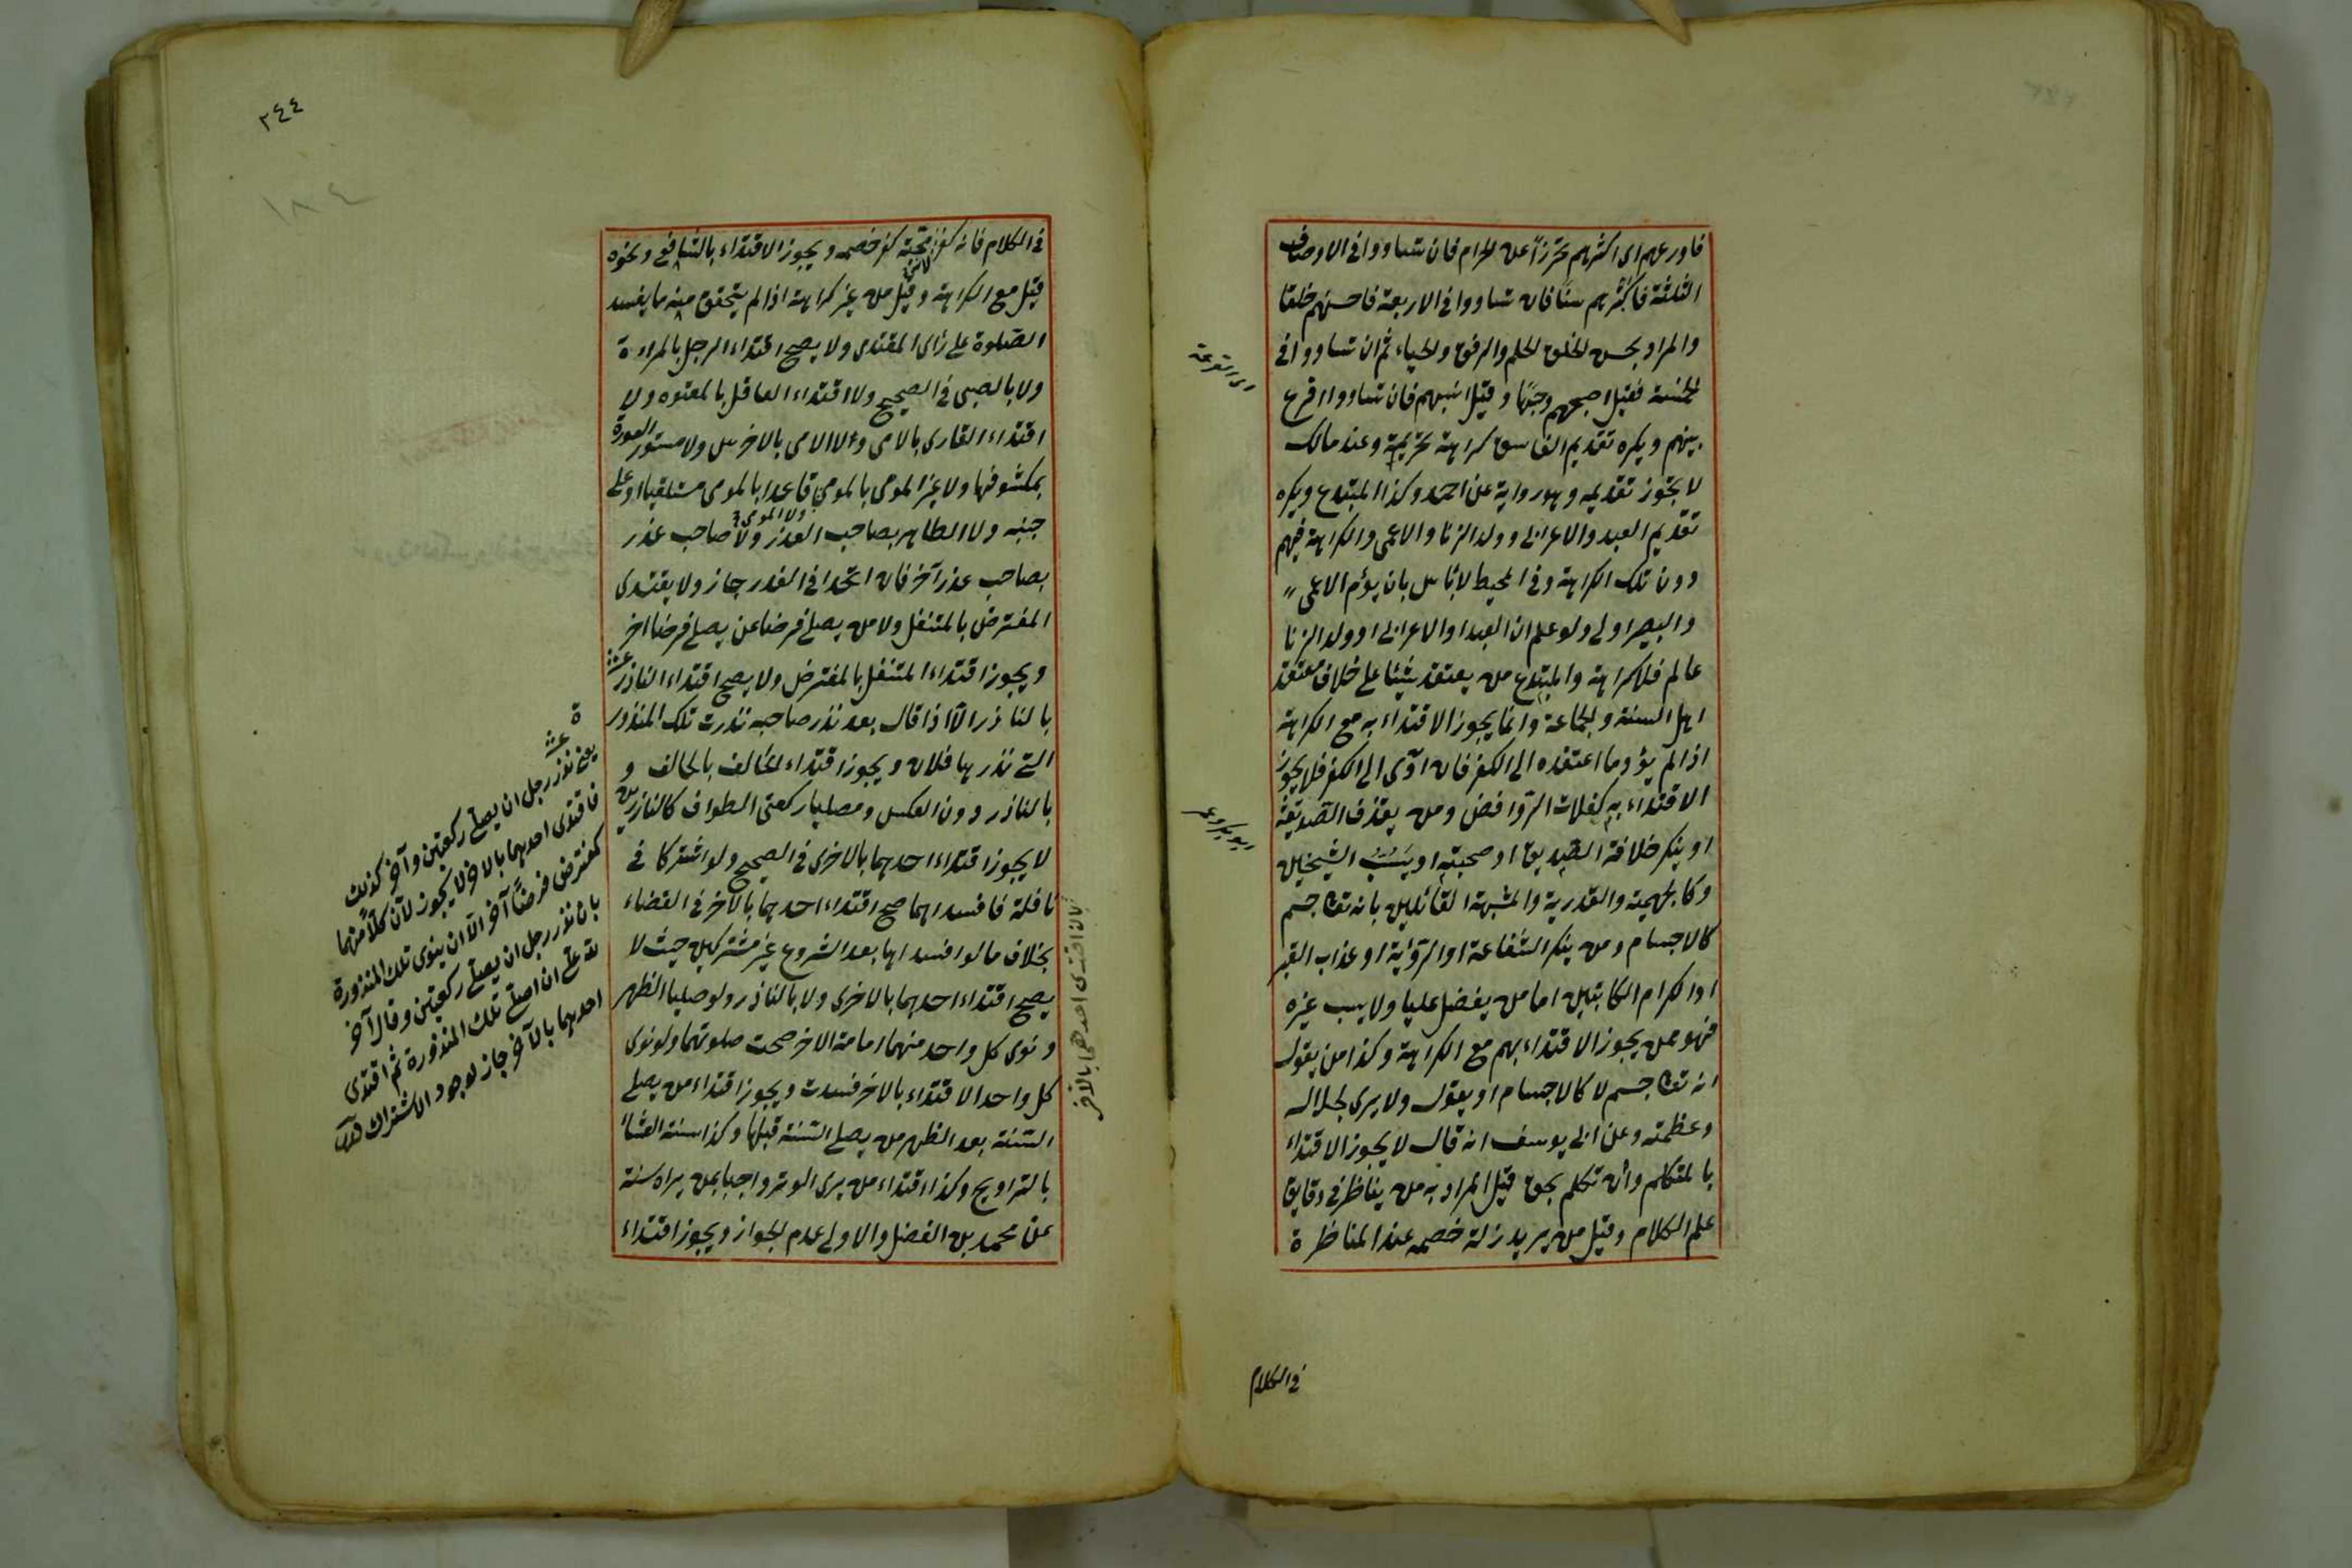 فاورعهم اى اكثرهم تحرزاً عن الحرام فان تساووا فى الاوصاف
الثلثة فاكثرهم سنا فان تساووا فى الاربعة فاحسنهم خلقا
والمراد بحسن الخلق الحلم والرفق والحياء ثم ان تساووا فى
الخمسة فقيل اصبحهم وجها وقيل انسبهم فان تساووا اقرع
بينهم ويكره تقديم الفاسق كراهة تحريمة وعند مالك
لا يجوز تقديمه وهو رواية عن احمد وكذا المبتدع ويكره
تقديم العبد والاعرابى وولد الزنا والاعمى والكراهة فيهم
دون تلك الكراهة وفى المحيط لا بأس بان يؤم الاعمى
والبصير اولى ولو علم ان العبد او الاعرابى او ولد الزنا
عالم فلا كراهة والمبتدع من يعتقد شيئا على خلاف معتقد
اهل السنة والجماعة وانما يجوز الاقتداء به مع الكراهة
اذا لم يؤد ما اعتقده الى الكفر فان ادّى الى الكفر فلا يجوز
الاقتداء به كغلات الروافض ومن يقذف الصديقة
او ينكر خلافة الصديق او صحبته او يسب الشيخين
وكالجهمية والقدرية والمشبهة القائلين بانه تعا جسم
كالاجسام ومن ينكر الشفاعة او الرؤية او عذاب القبر
او الكرام الكاتبين اما من يفضل عليا ولا يسب غيره
فهو ممن يجوز الاقتداء بهم مع الكراهة وكذا من يقول
انه تعا جسم لا كالاجسام او يقول ولا يرى لجلاله
وعظمته وعن ابى يوسف انه قال لا يجوز الاقتداء
بالمتكلم وان تكلم بحق قيل المراد به من يناظر فى دقايق
علم الكلام وقيل من يريد زلة خصمه عند المناظرة
اى القرعة
ابو بكر وعمر
فى الكلام
٢٤٤
١٨٤
فى الكلام فانه كفر محبة كفر خصمه ويجوز الاقتداء بالشافعى ونحوه
قيل مع الكراهة وقيل من غير كراهة اذا لم يتحقق منه ما يفسد
الصلوة على رأى المقتدى ولا يصح اقتداء الرجل بالمراءة
ولا بالصبى فى الصحيح ولا اقتداء العاقل بالمعتوه ولا
اقتداء القارى بالامى ولا الامى بالاخرس ولا مستور العورة
بمكشوفها ولا غير المومى بالمومى ولا المومى قاعدا بالمومى مستلقيا او على
جنبه ولا الطاهر بصاحب العذر ولا صاحب عذر
بصاحب عذر آخر فان اتحدا فى العذر جاز ولا يقتدى
المفترض بالمتنفل ولا من يصلى فرضا عن يصلى فرضا اخر
ويجوز اقتداء المتنفل بالمفترض ولا يصح اقتداء الناذر
بالناذر الا اذا قال بعد نذر صاحبه نذرت تلك المنذورة
التى نذر بها فلان ويجوز اقتداء الحالف بالحالف و
بالناذر دون العكس ومصليا ركعتى الطواف كالناذرين
لا يجوز اقتداء احدهما بالاخرى فى الصحيح ولو اشتركا فى
نافلة فافسداهما صح اقتداء احدهما بالاخر فى القضاء
بخلاف ما لو افسداها بعد الشروع غير مشتركين حيث لا
يصح اقتداء احدهما بالاخرى ولا بالناذر ولو صليا الظهر
ونوى كل واحد منهما امامة الاخر صحت صلوتهما ولو نوى
كل واحد الاقتداء بالاخر فسدت ويجوز اقتداء من يصلى
السنة بعد الظهر من يصلى السنة قبلها وكذا سنة العشاء
بالتراويح وكذا اقتداء من يرى الوتر واجبا بمن يراه سنة
عن محمد بن الفضل والاولى عدم الجواز ويجوز اقتداء
بان اقتدى احدهما بالآخر
يعنى نذر رجل ان يصلى ركعتين وآخر كذلك
فاقتدى احدهما بالآخر لا يجوز لان كلا منهما
كمفترض فرضا آخر الا ان ينوى تلك المنذورة
بان نذر رجل ان يصلى ركعتين وقال آخر
لله على ان اصلى تلك المنذورة ثم اقتدى
احدهما بالآخر جاز لوجود الاشتراك